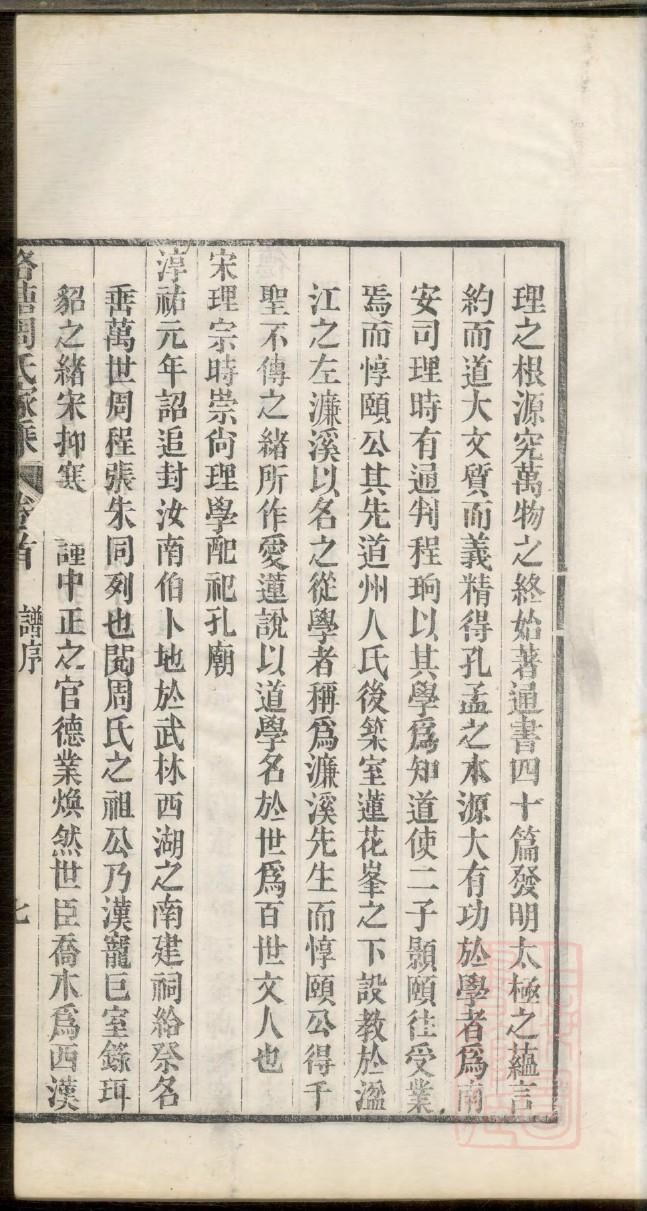 理之根源究萬物之終始著通書四十篇發明太極之蘊言
約而道大文質而義精得孔孟之本源大有功於學者爲南
安司理時有通判程珦以其學爲知道使二子顥頤往受業
焉而惇頤公其先道州人氏後築室蓮花峯之下設教於溢
江之左濂溪以名之從學者稱爲濂溪先生而惇頤公得千
聖不傳之緒所作愛蓮說以道學名於世爲百世文人也
宋理宗時崇尙理學配祀孔廟
淳祐元年詔追封汝南伯卜地於武林西湖之南建祠給祭名
垂萬世周程張朱同列也閱周氏之祖公乃漢寵巨室錄珥
貂之緖宋抑寒 諲中正之官德業煥然世臣喬木爲西漢
周氏家乘 卷首 譜序 七